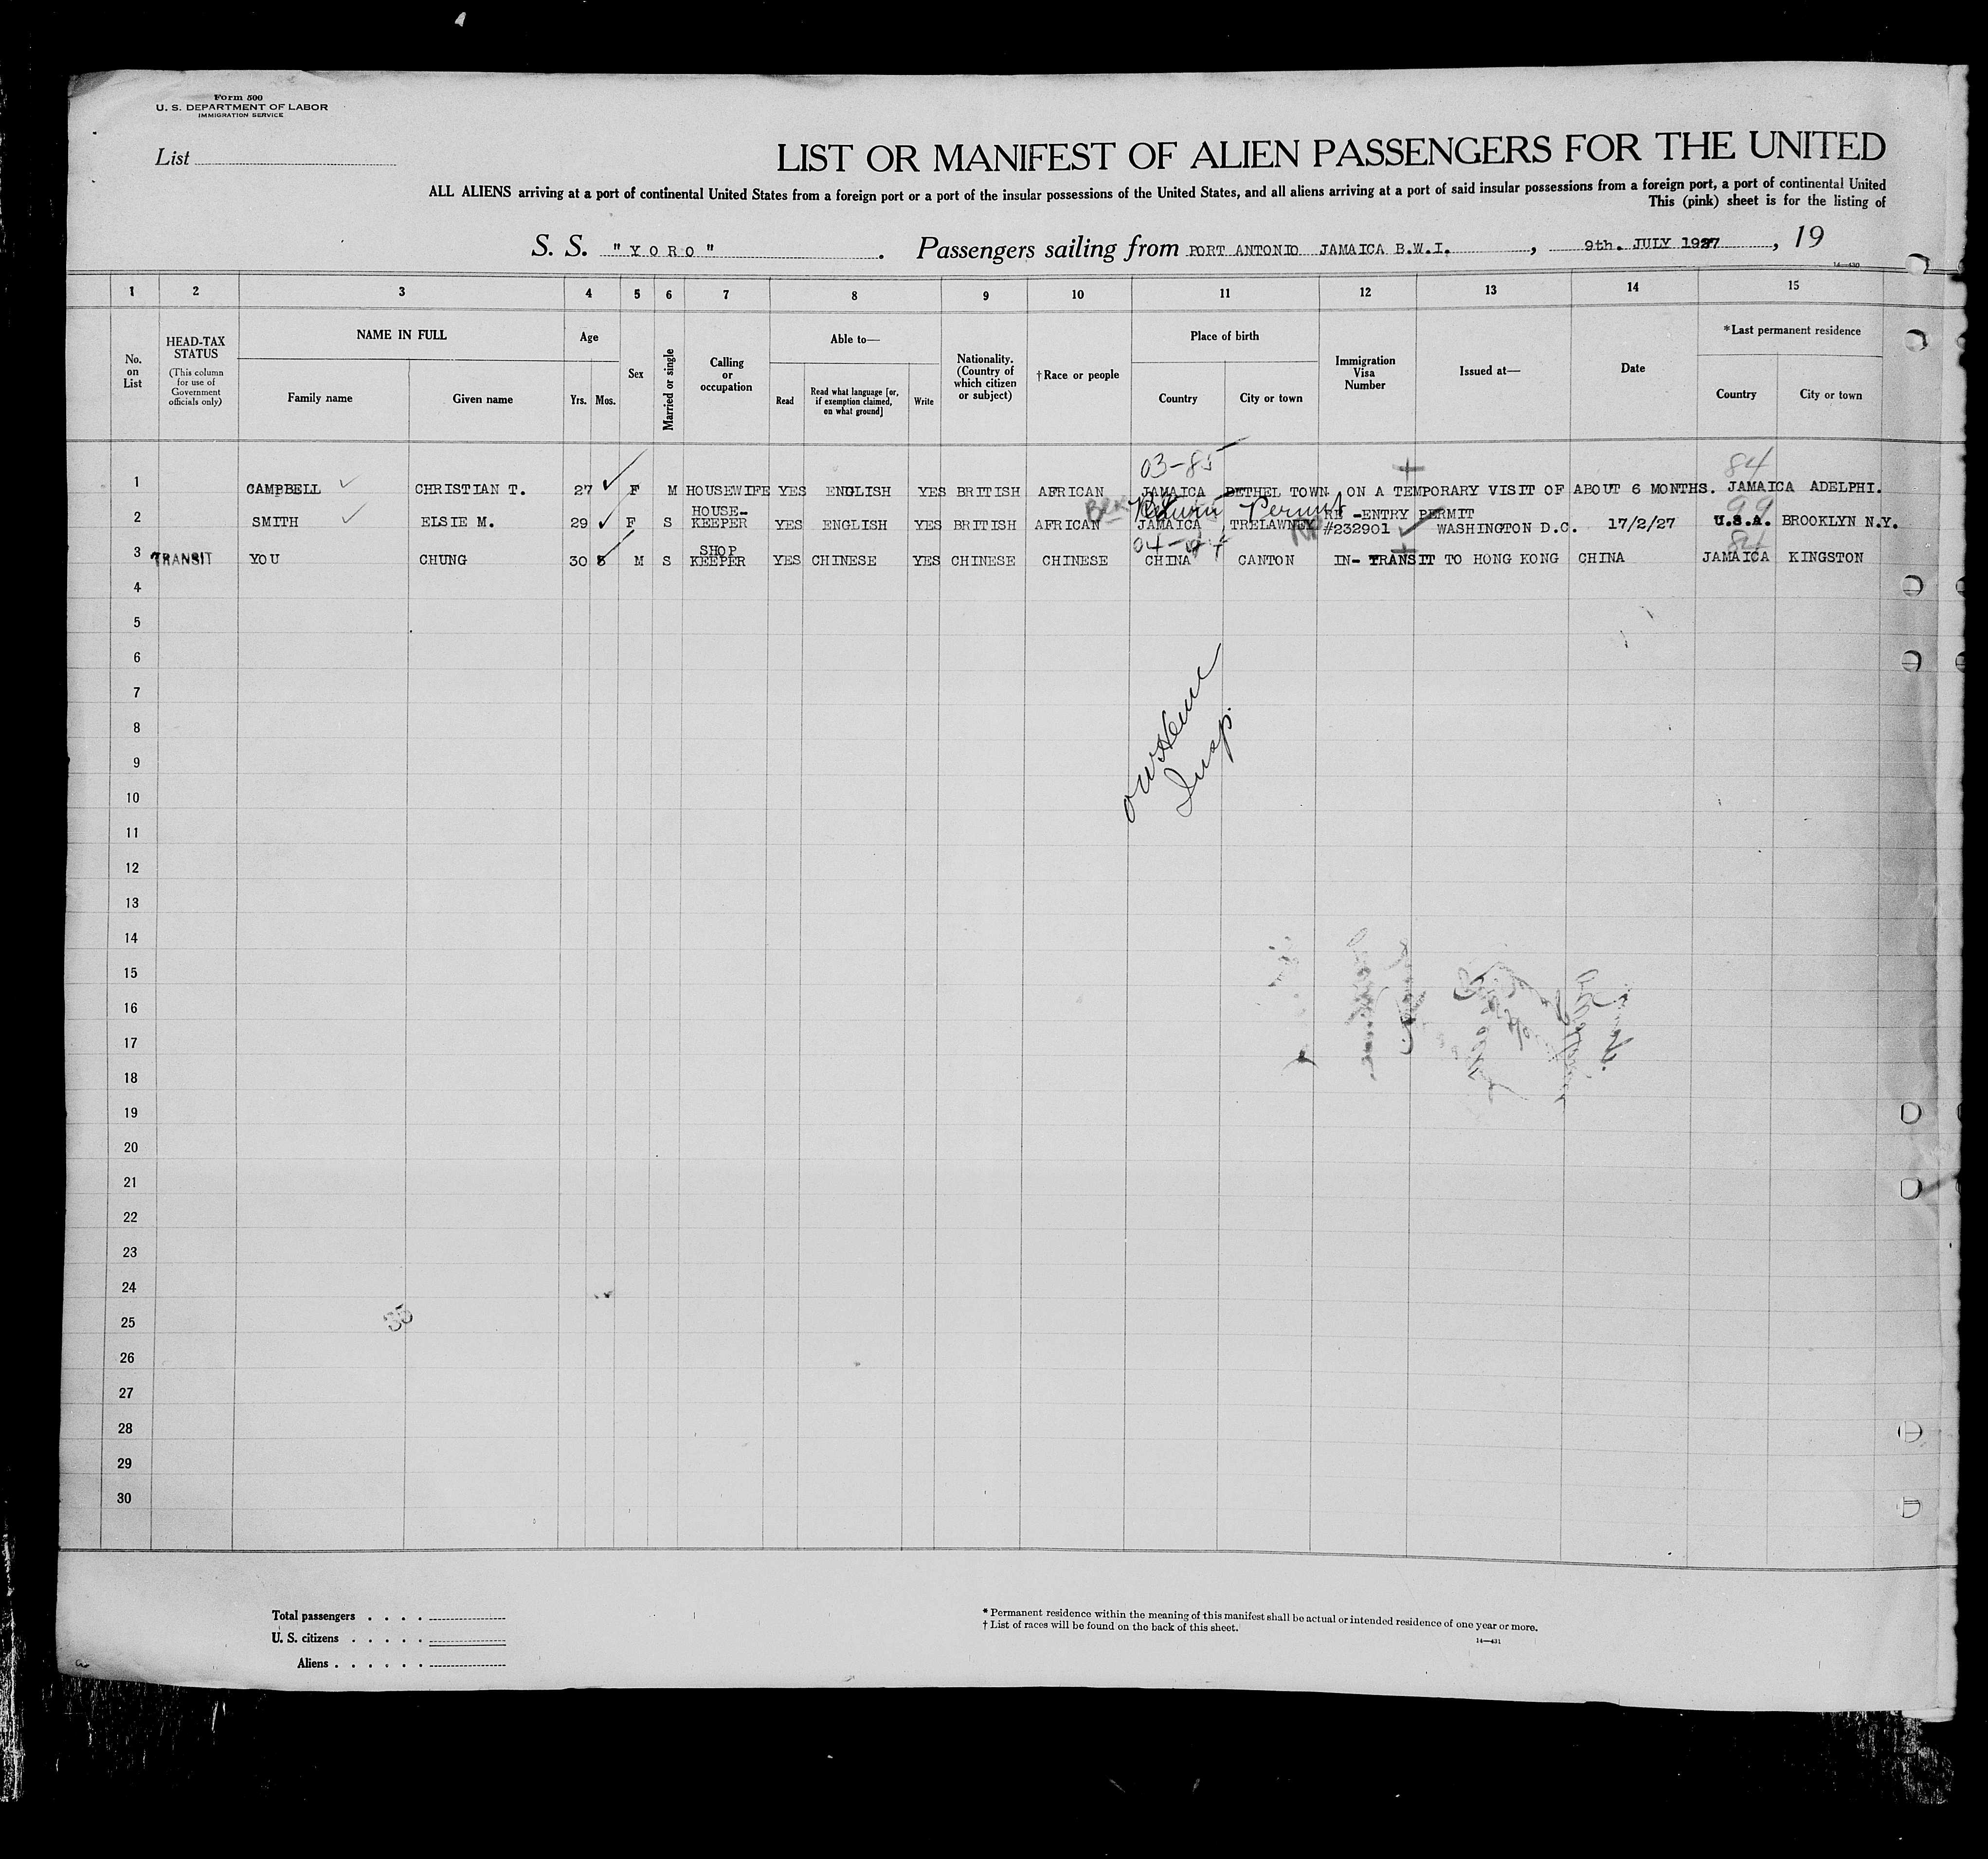 Form 500
U. S. DEPARTMENT OF LABOR
IMMIGRATION SERVICE
List
LIST OR MANIFEST OF ALIEN PASSENGERS FOR THE UNITED
ALL ALIENS arriving at a port of continental United States from a foreign port or a port of the insular possessions of the United States, and all aliens arriving at a port of said insular possessions from a foreign port, a port of continental United
This (pink) sheet is for the listing of
S. S. "YORO". Passengers sailing from PORT ANTONIO JAMAICA B.W.I., 9th. JULY 1927, 19
14—430
1 2 3 4 5 6 7 8 9 10 11 12 13 14 15
No. on List
HEAD-TAX STATUS
(This column for use of Government officials only)
NAME IN FULL
Family name Given name
Age
Yrs. Mos.
Sex
Married or single
Calling or occupation
Able to—
Read
Read what language [or, if exemption claimed, on what ground]
Write
Nationality. (Country of which citizen or subject)
†Race or people
Place of birth
Country City or town
Immigration Visa Number
Issued at—
Date
*Last permanent residence
Country City or town
03-85 84
1 CAMPBELL CHRISTIAN T. 27 F M HOUSEWIFE YES ENGLISH YES BRITISH AFRICAN JAMAICA BETHEL TOWN ON A TEMPORARY VISIT OF ABOUT 6 MONTHS. JAMAICA ADELPHI.
Return Permit 99
2 SMITH ELSIE M. 29 F S HOUSE-KEEPER YES ENGLISH YES BRITISH AFRICAN JAMAICA TRELAWNEY RE-ENTRY PERMIT #232901 WASHINGTON D.C. 17/2/27 U.S.A. BROOKLYN N.Y.
84
3 TRANSIT YOU CHUNG 30 M S SHOP KEEPER YES CHINESE YES CHINESE CHINESE CHINA CANTON IN-TRANSIT TO HONG KONG CHINA JAMAICA KINGSTON
4
5
6
7
8
9
10
11
12
13
14
15
16
17
18
19
20
21
22
23
24
25
26
27
28
29
30
Insp.
35
Total passengers
U. S. citizens
Aliens
* Permanent residence within the meaning of this manifest shall be actual or intended residence of one year or more.
† List of races will be found on the back of this sheet.
14—431